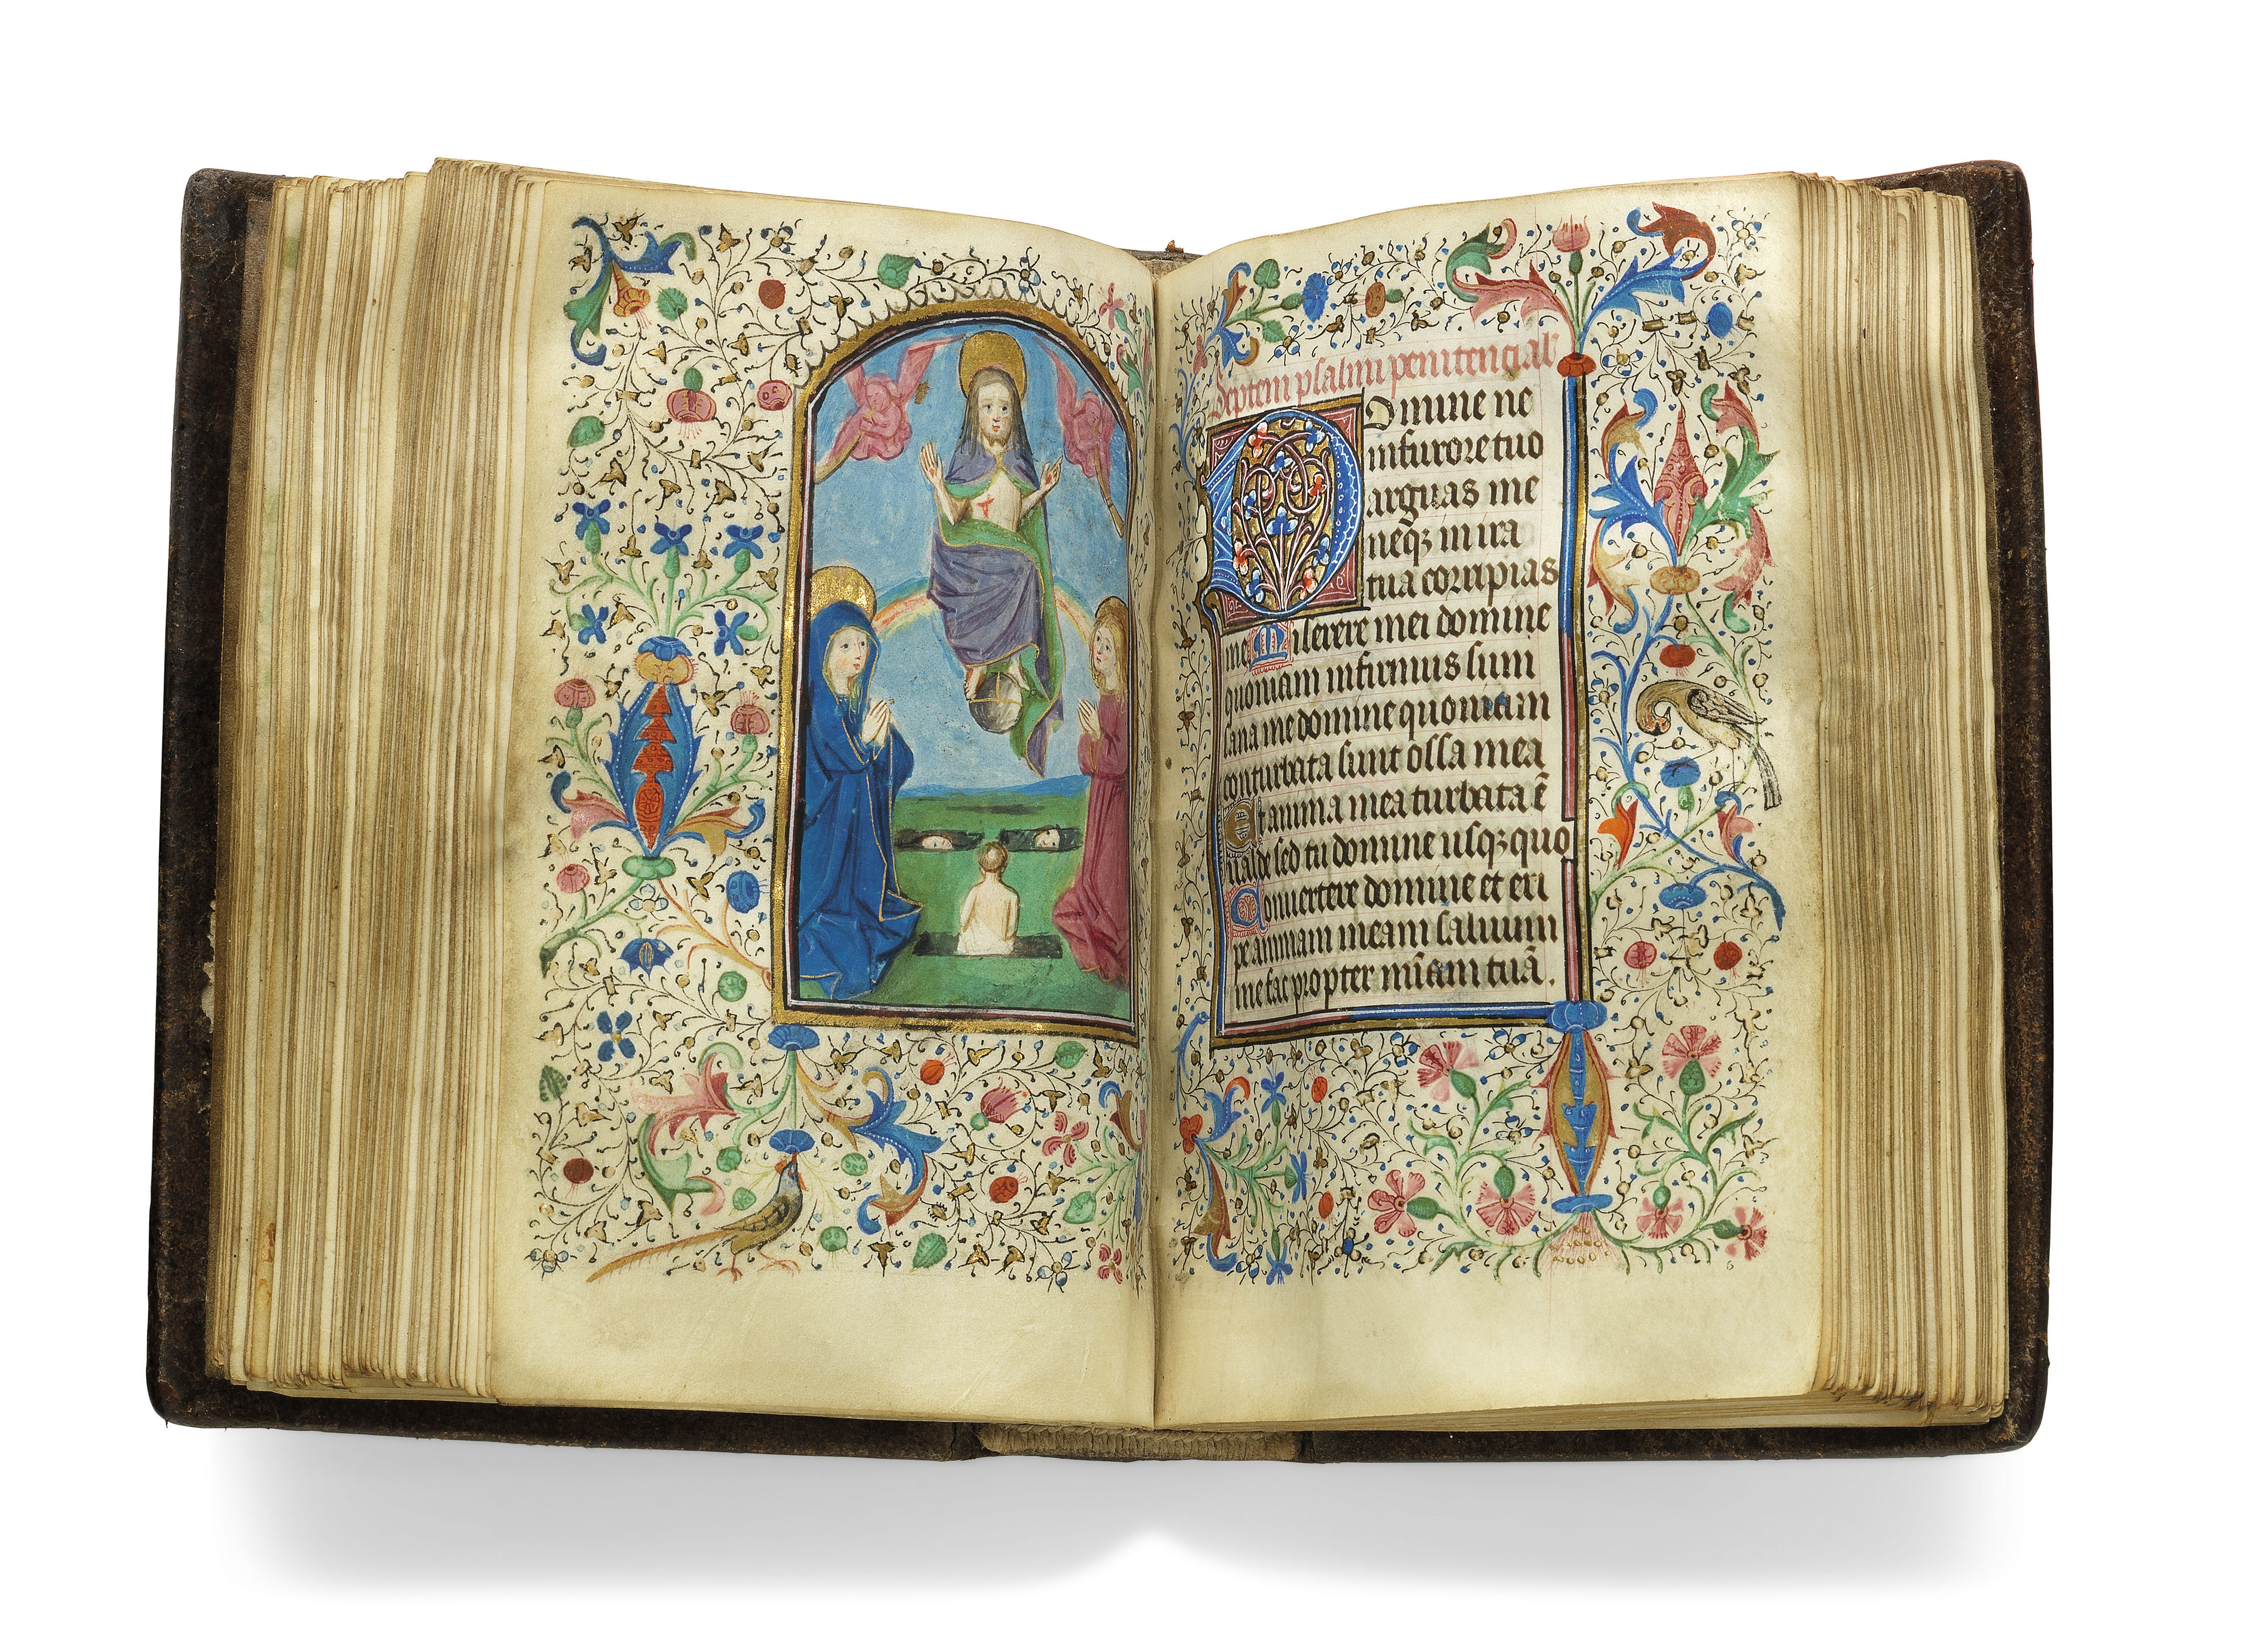 Septem psalmi penitencial
Domine ne
in furore tuo
arguas me
neqꝫ in ira
tua corripias
me Miserere mei domine
quoniam infirmus sum
sana me domine quoniam
conturbata sunt ossa mea
Et anima mea turbata ē
ualde sed tu domine usqꝫ quo
Conuertere domine et eri
pe animam meam saluum
me fac propter mīam tuā.